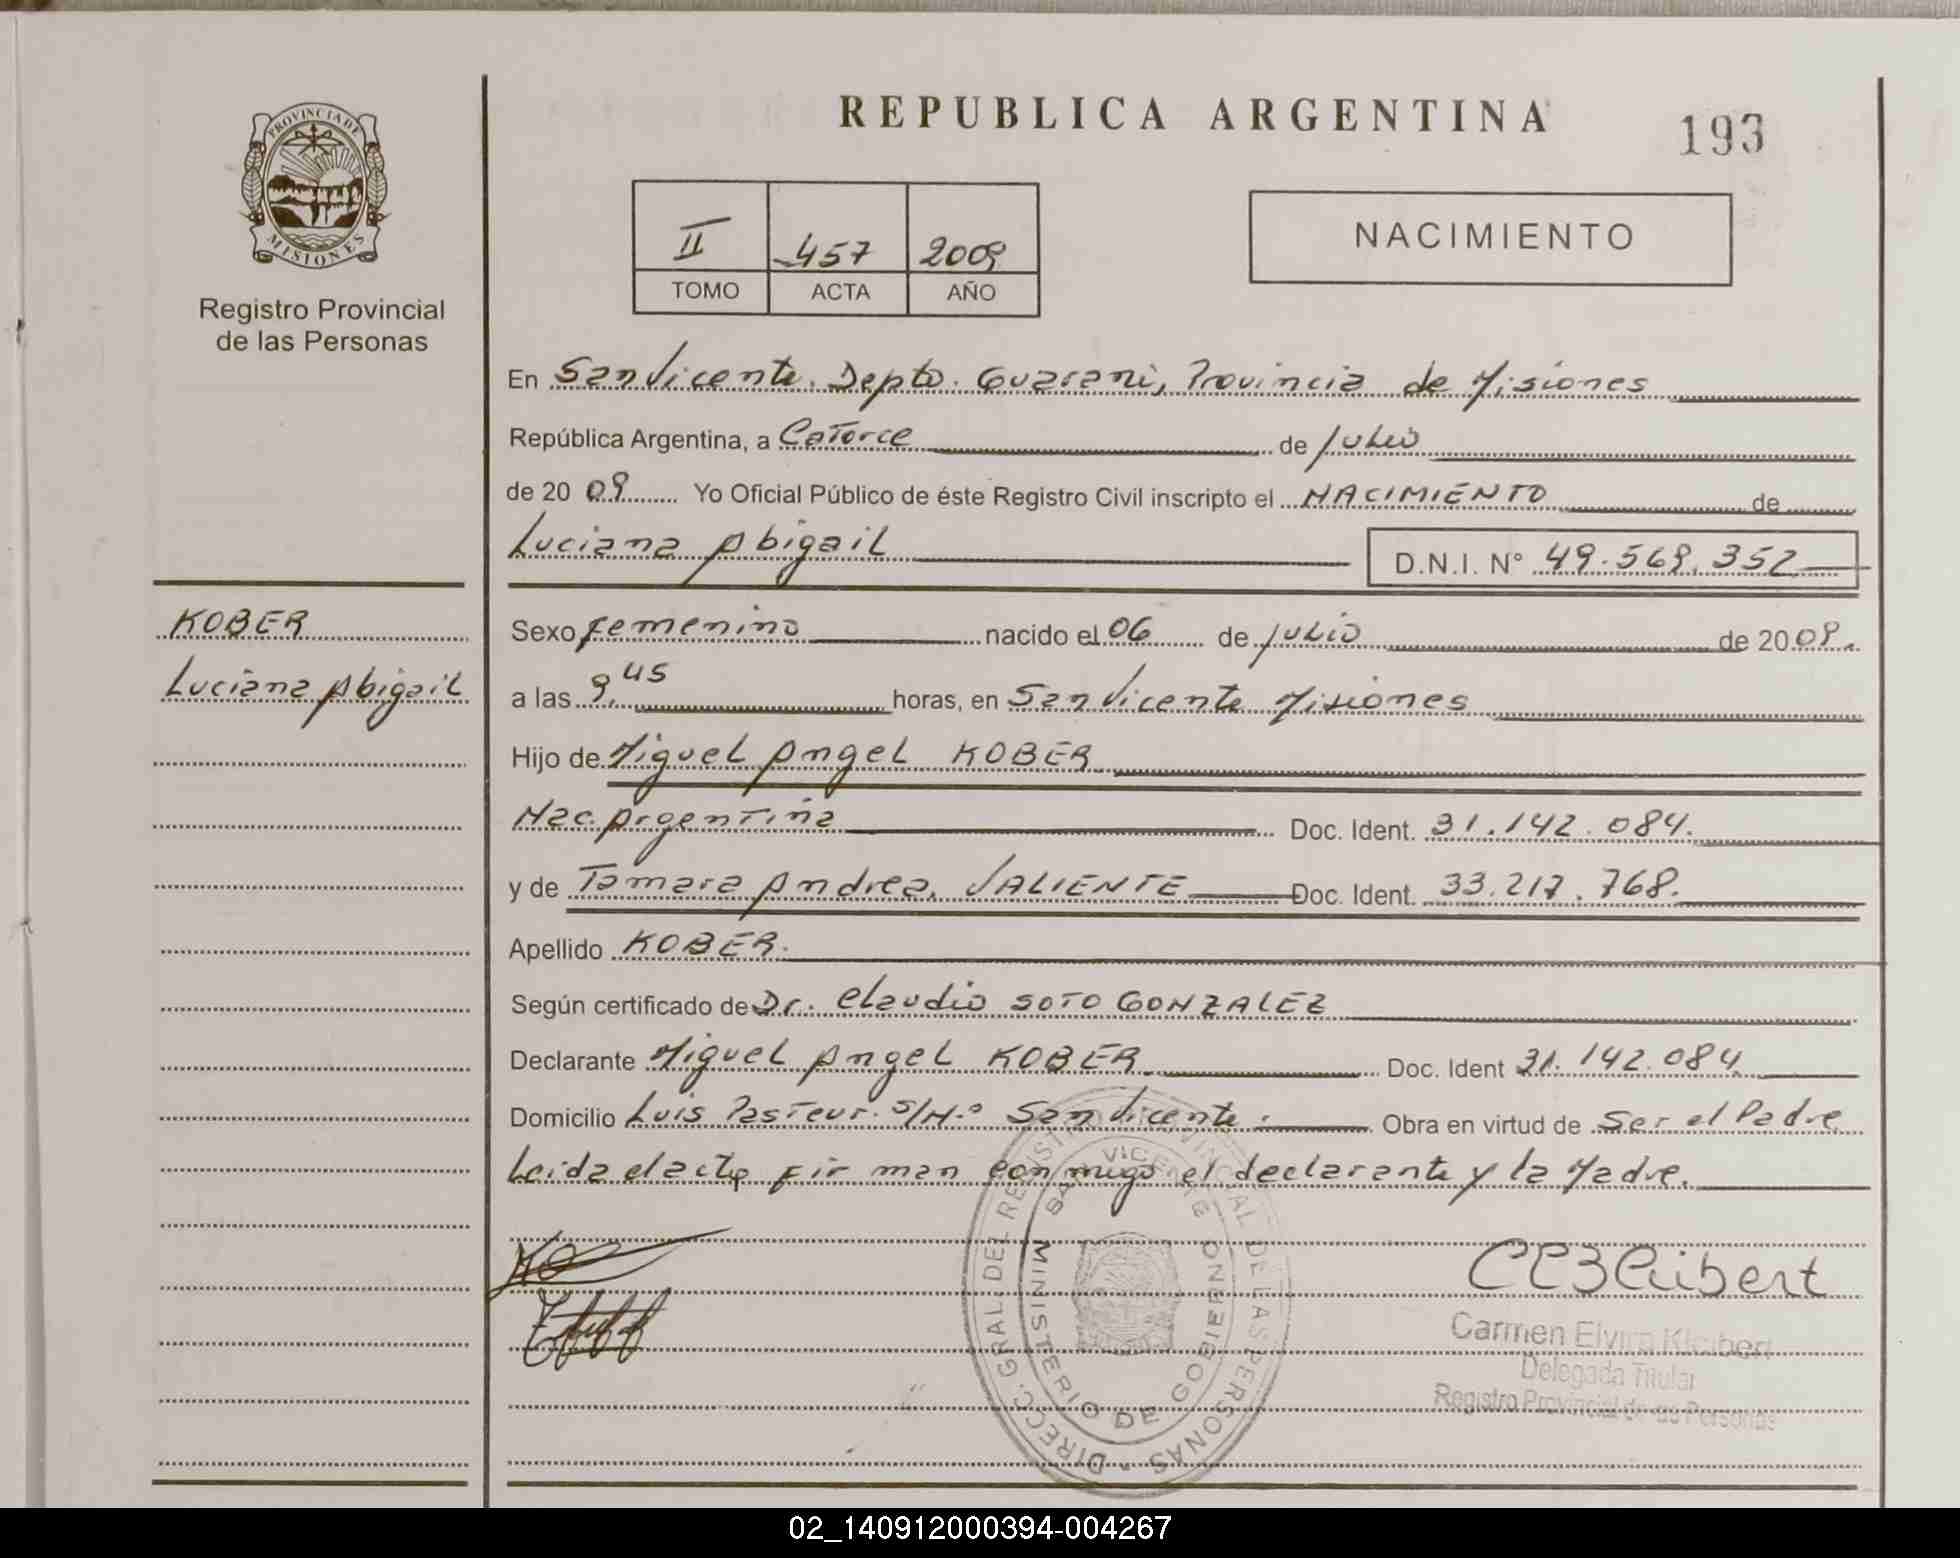 REPUBLICA ARGENTINA
193
PROVINCIA DE
MISIONES
Registro Provincial
de las Personas
II 457 2009
TOMO ACTA AÑO
NACIMIENTO
En San Vicente. Depto. Guarani, Provincia de Misiones
República Argentina, a Catorce de Julio
de 20 09 Yo Oficial Público de éste Registro Civil inscripto el NACIMIENTO de
Luciana Abigail
D.N.I. N° 49.569.352
KOBER
Luciana Abigail
Sexo femenino nacido el 06 de Julio de 20 09.
a las 9,45 horas, en San Vicente Misiones
Hijo de Miguel Angel KOBER
Nac. Argentina Doc. Ident. 31.142.084.
y de Tamara Andrea. VALIENTE Doc. Ident. 33.217.768.
Apellido KOBER.
Según certificado de Dr. Claudio SOTO GONZALEZ
Declarante Miguel Angel KOBER Doc. Ident 31.142.084
Domicilio Luis Pasteur. S/N.º San Vicente. Obra en virtud de Ser el Padre
Leida el acta firman conmigo el declarante y la Madre.
DIRECC. GRAL. DEL REGISTRO PROVINCIAL DE LAS PERSONAS
SAN VICENTE
MINISTERIO DE GOBIERNO
Carmen Elvira Kleibert
Delegada Titular
Registro Provincial de las Personas
02_140912000394-004267